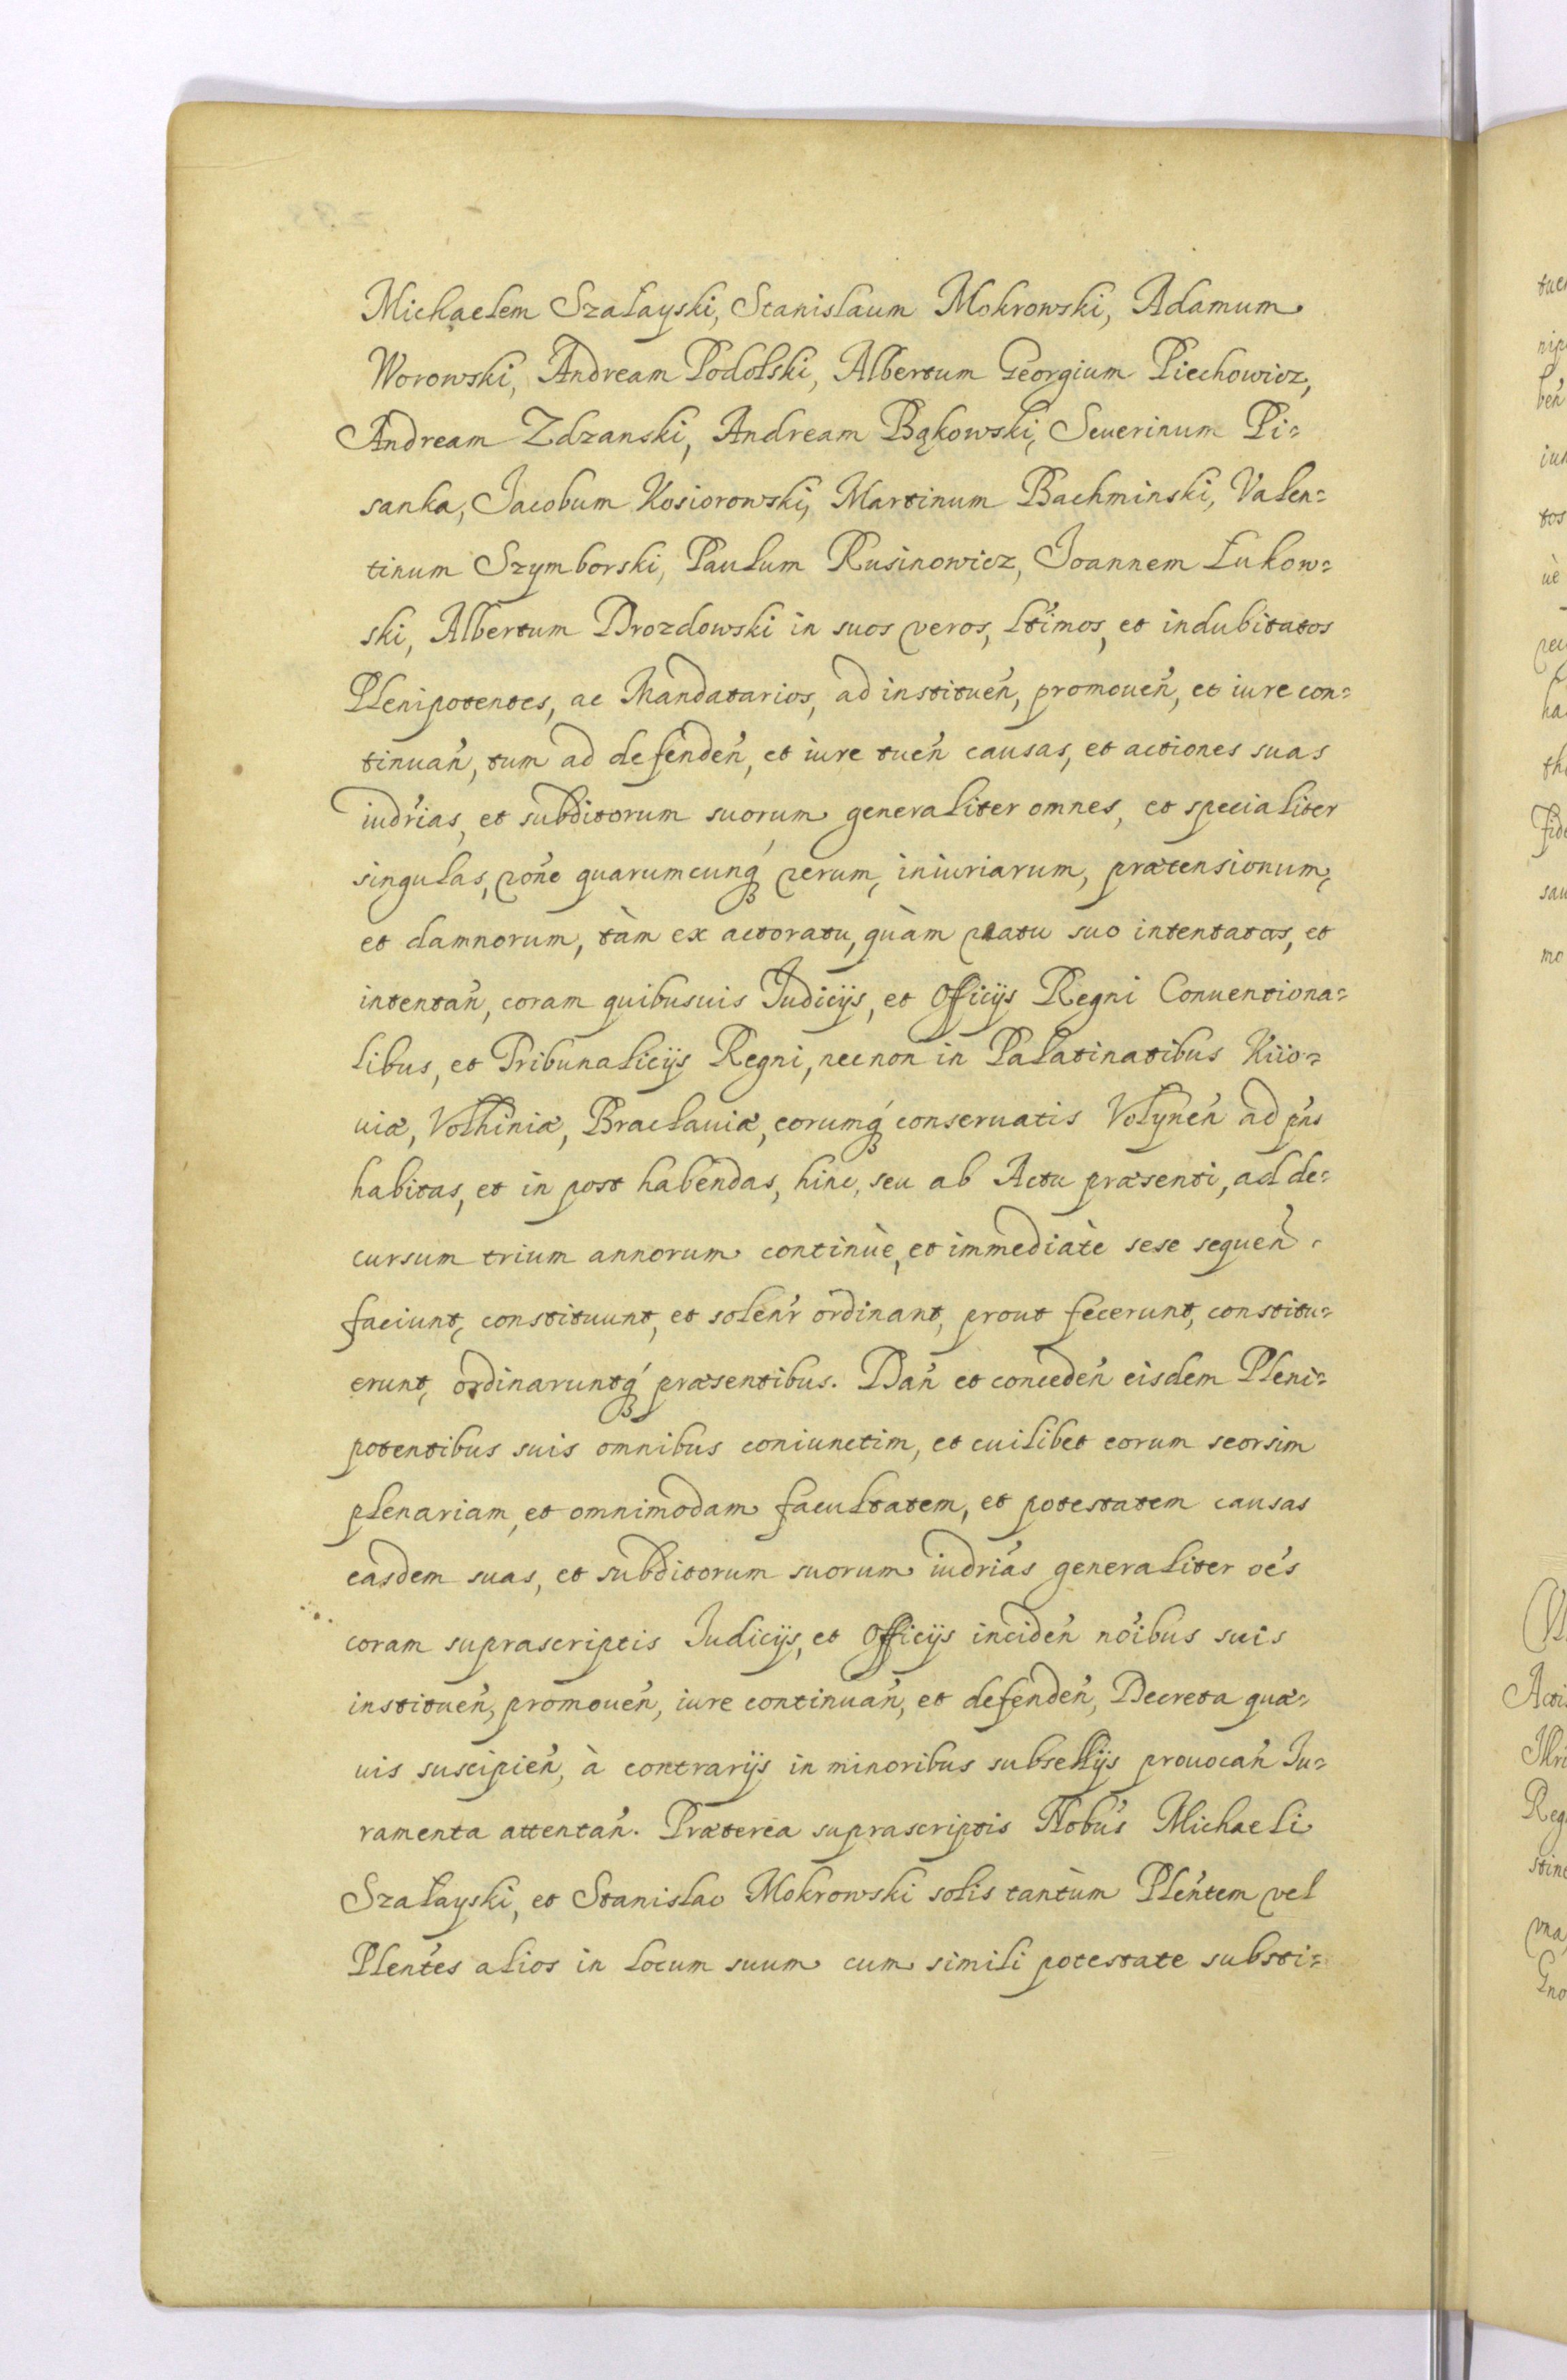 Michaelem Szałayski, Stanislaum Mokrowski, Adamum
Worowski, Andream Podolski, Albertum Georgium Piechowicz,
Andream Zdzanski, Andream Bąkowski, Seuerinum Pi=
sanka, Jacobum Kosiorowski, Martinum Bachminski, Valen=
tinum Szymborski, Paulum Rusinowicz, Joannem Łukow=
ski, Albertum Drozdowski in suos veros, lt́imos, et indubitatos
Plenipotentes, ac Mandatarios, ad instituen̄, promouen̄, et iure con=
tinuan̄, tum ad defenden̄, et iure tuen̄ causas, et actiones suas
iudŕias, et subditorum suorum generaliter omnes, et specialiter
singulas, rōne quarumcunq́ꝫ rerum, iniuriarum, prætensionum,
et damnorum, tàm ex actoratu, quàm reatu suo intentatas, et
intentan̄, coram quibusuis Judicijs, et Officijs Regni Conuentiona=
libus, et Tribunalicijs Regni, necnon in Palatinatibus Kiio=
uiæ, Volhiniæ, Bracłauiæ, eorumq́ꝫ conseruatis Volynen̄ ad pn̄s
habitas, et in post habendas, hinc, seu ab Actu præsenti, ad de=
cursum trium annorum continùe, et immediatè sese sequen̄
faciunt, constituunt, et solen̄r ordinant, prout fecerunt, constitu=
erunt, ordinaruntq́ꝫ præsentibus. Dan̄ et conceden̄ eisdem Pleni=
potentibus suis omnibus coniunctim, et cuilibet eorum seorsim
plenariam, et omnimodam facultatem, et potestatem causas
easdem suas, et subditorum suorum iudriás generaliter oés
coram suprascriptis Judicijs, et Officijs inciden̄ nóibus suis
instituen̄, promouen̄, iure continuan̄, et defenden̄, Decreta quæ=
uis suscipien̄, à contrarijs in minoribus subsellijs prouocan̄ Ju=
ramenta attentan̄. Præterea suprascriptis Nobús Michaeli
Szałayski, et Stanislao Mokrowski solis tantùm Pleńtem vel
Plentés alios in locum suum cum simili potestate substi=